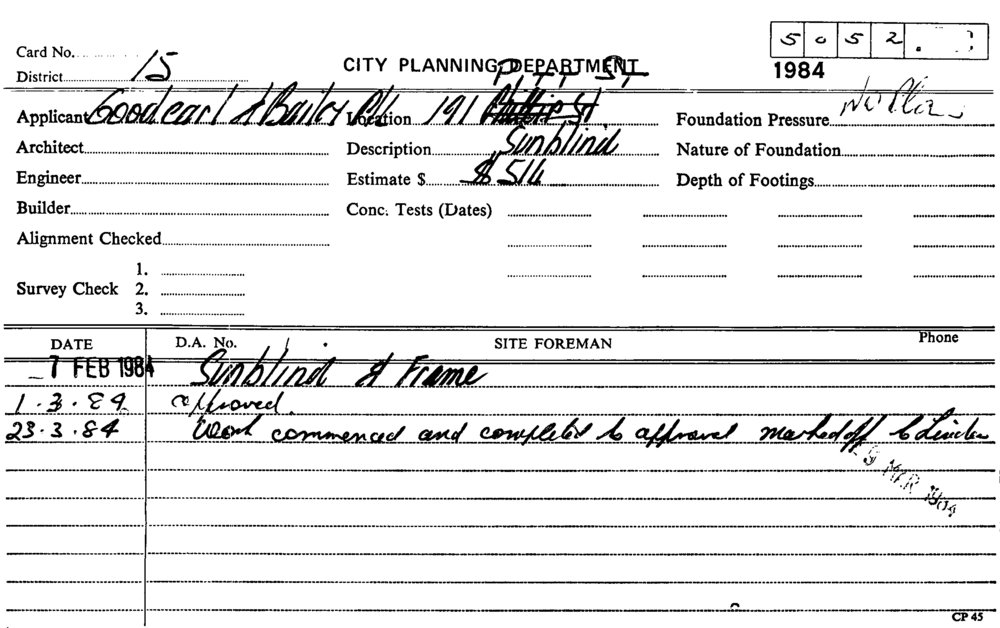 5052
Card No.
District 15
CITY PLANNING DEPARTMENT
1984
PITT ST
Applicant Goodearl & Bailey P/L Location 191 Phillip St Foundation Pressure No Plan
Architect Description Sunblind Nature of Foundation
Engineer Estimate $ $514 Depth of Footings
Builder Conc. Tests (Dates)
Alignment Checked
1.
Survey Check 2.
3.
DATE D.A. No. SITE FOREMAN Phone
7 FEB 1984 Sunblind & Frame
1.3.84 approved.
23.3.84 Work commenced and completed to approval marked off
MAR 1984
CP 45